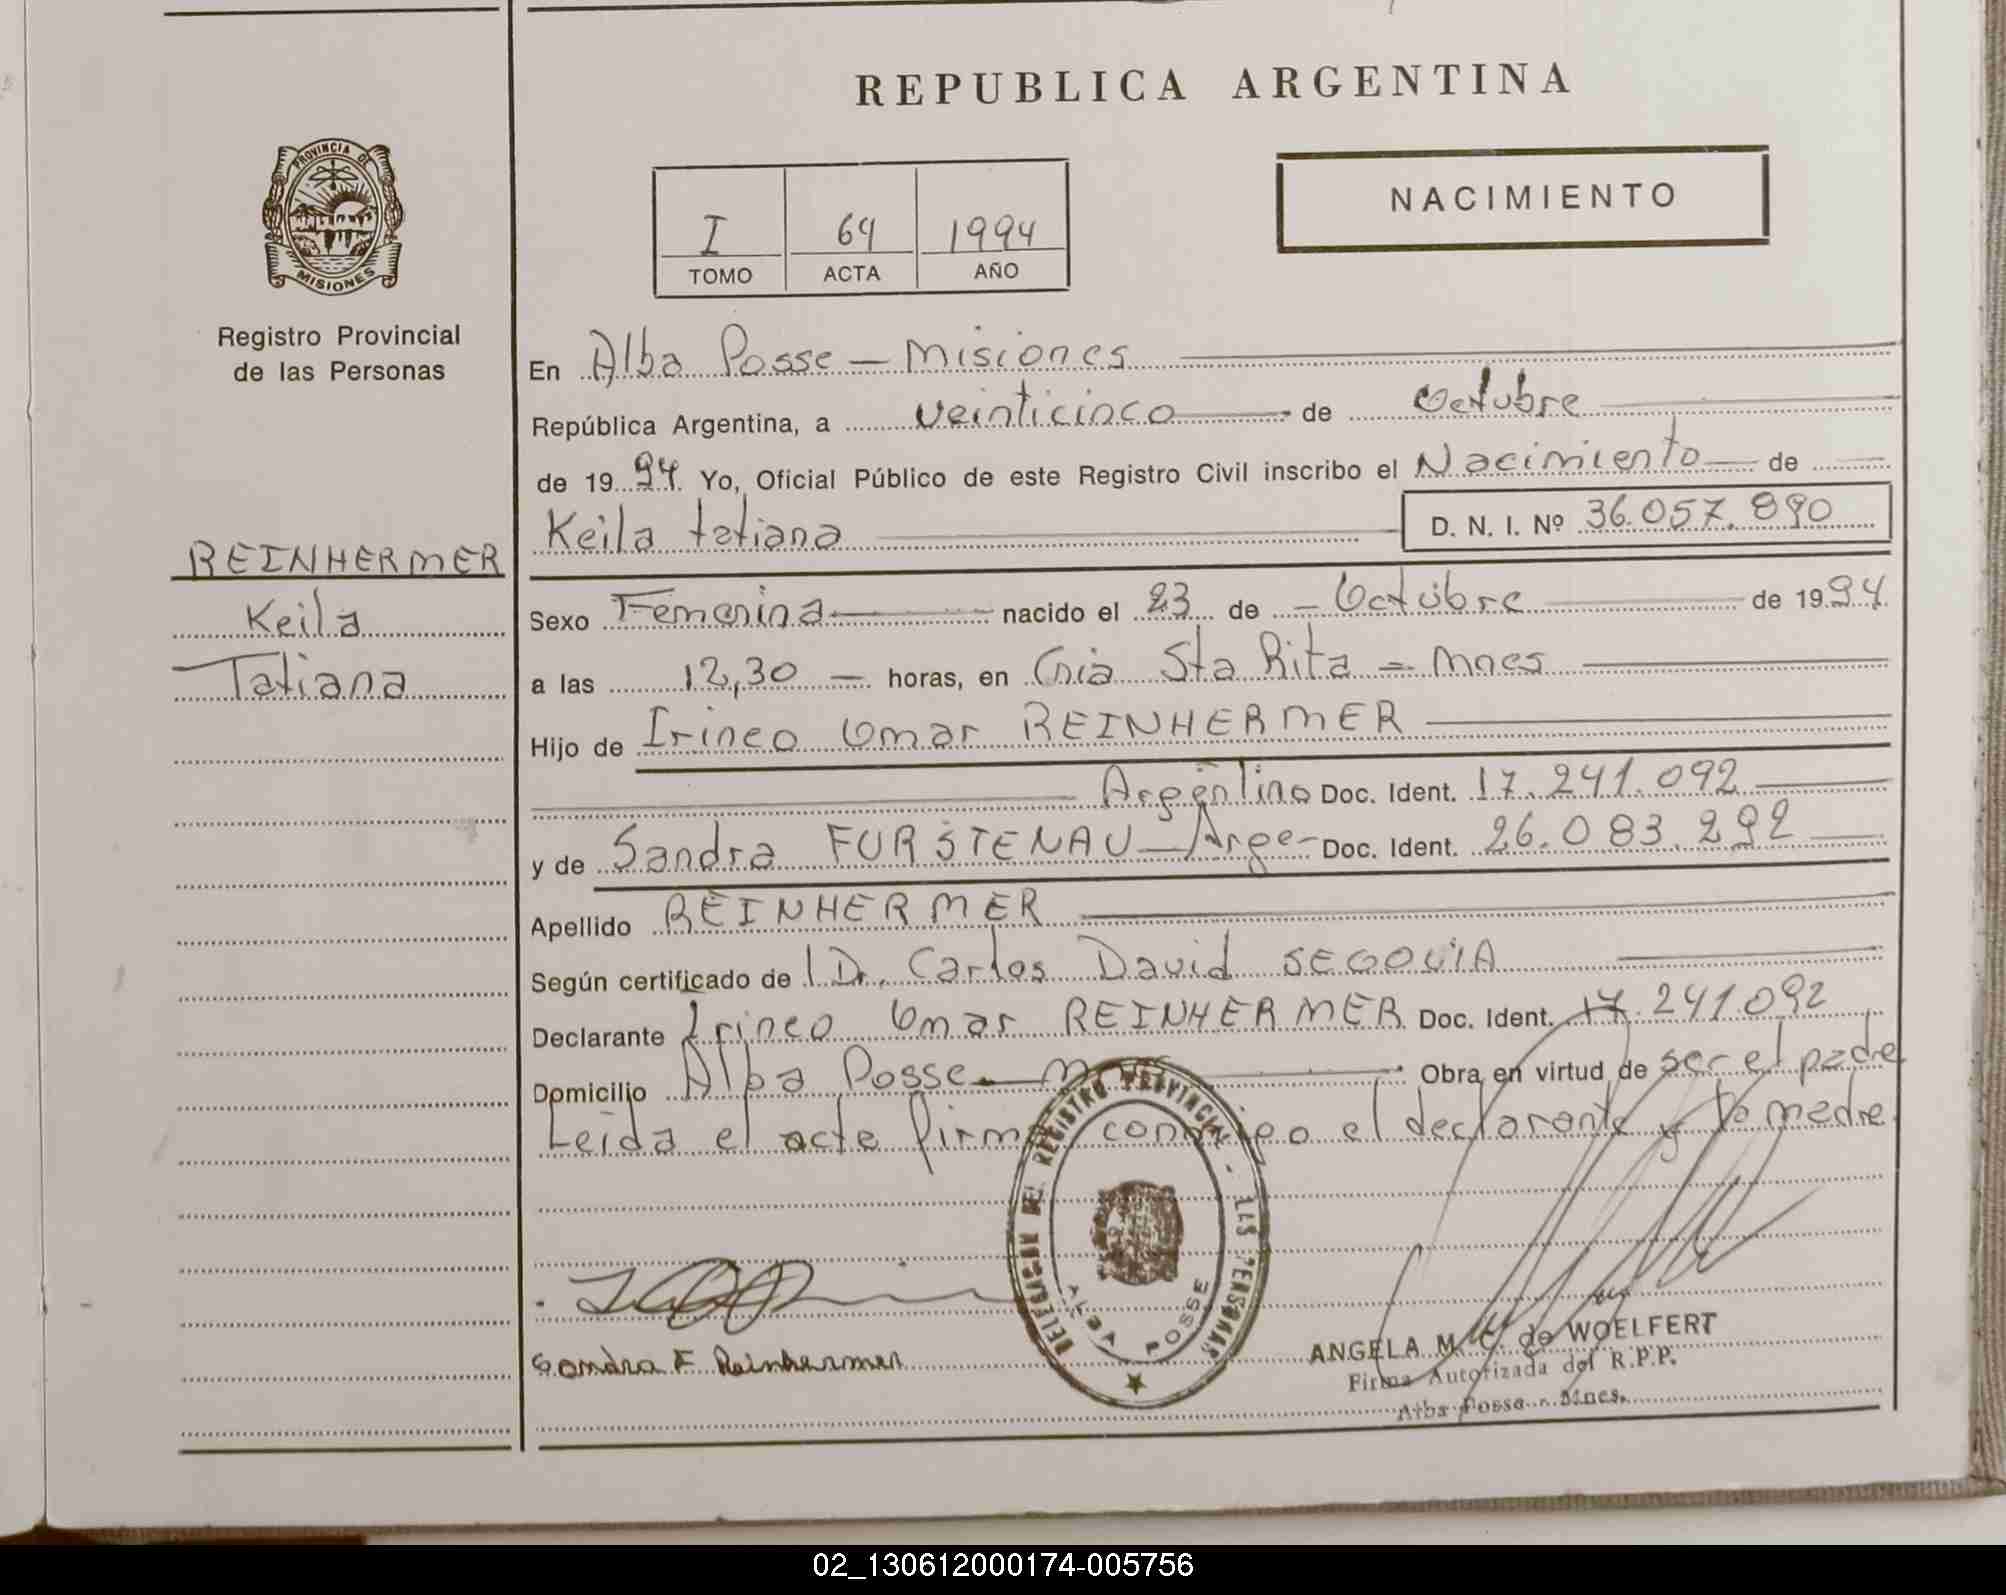 REPUBLICA ARGENTINA
PROVINCIA DE
MISIONES
Registro Provincial
de las Personas
NACIMIENTO
I 64 1994
TOMO ACTA AÑO
En Alba Posse - Misiones
República Argentina, a veinticinco de Octubre
de 1994 Yo, Oficial Público de este Registro Civil inscribo el Nacimiento de
Keila tatiana D. N. I. Nº 36.057.890
REINHERMER
Keila
Tatiana
Sexo Femenina nacido el 23 de - Octubre de 1994
a las 12,30 - horas, en Cnia Sta Rita = Mnes
Hijo de Irineo Omar REINHERMER
Argentino Doc. Ident. 17.241.092
y de Sandra FURSTENAU - Arge- Doc. Ident. 26.083.292
Apellido REINHERMER
Según certificado de Dr. Carlos David SEGOVIA
Declarante Irineo Omar REINHERMER Doc. Ident. 17.241.092
Domicilio Alba Posse - Obra en virtud de ser el padre
Leida el acta firma conmigo el declarante y la madre
DELEGACION DEL REGISTRO PROVINCIAL - LAS PERSONAS
ALBA POSSE
Sandra F Reinhermer
ANGELA M. C. de WOELFERT
Firma Autorizada del R.P.P.
Alba Posse - Mnes.
02_130612000174-005756